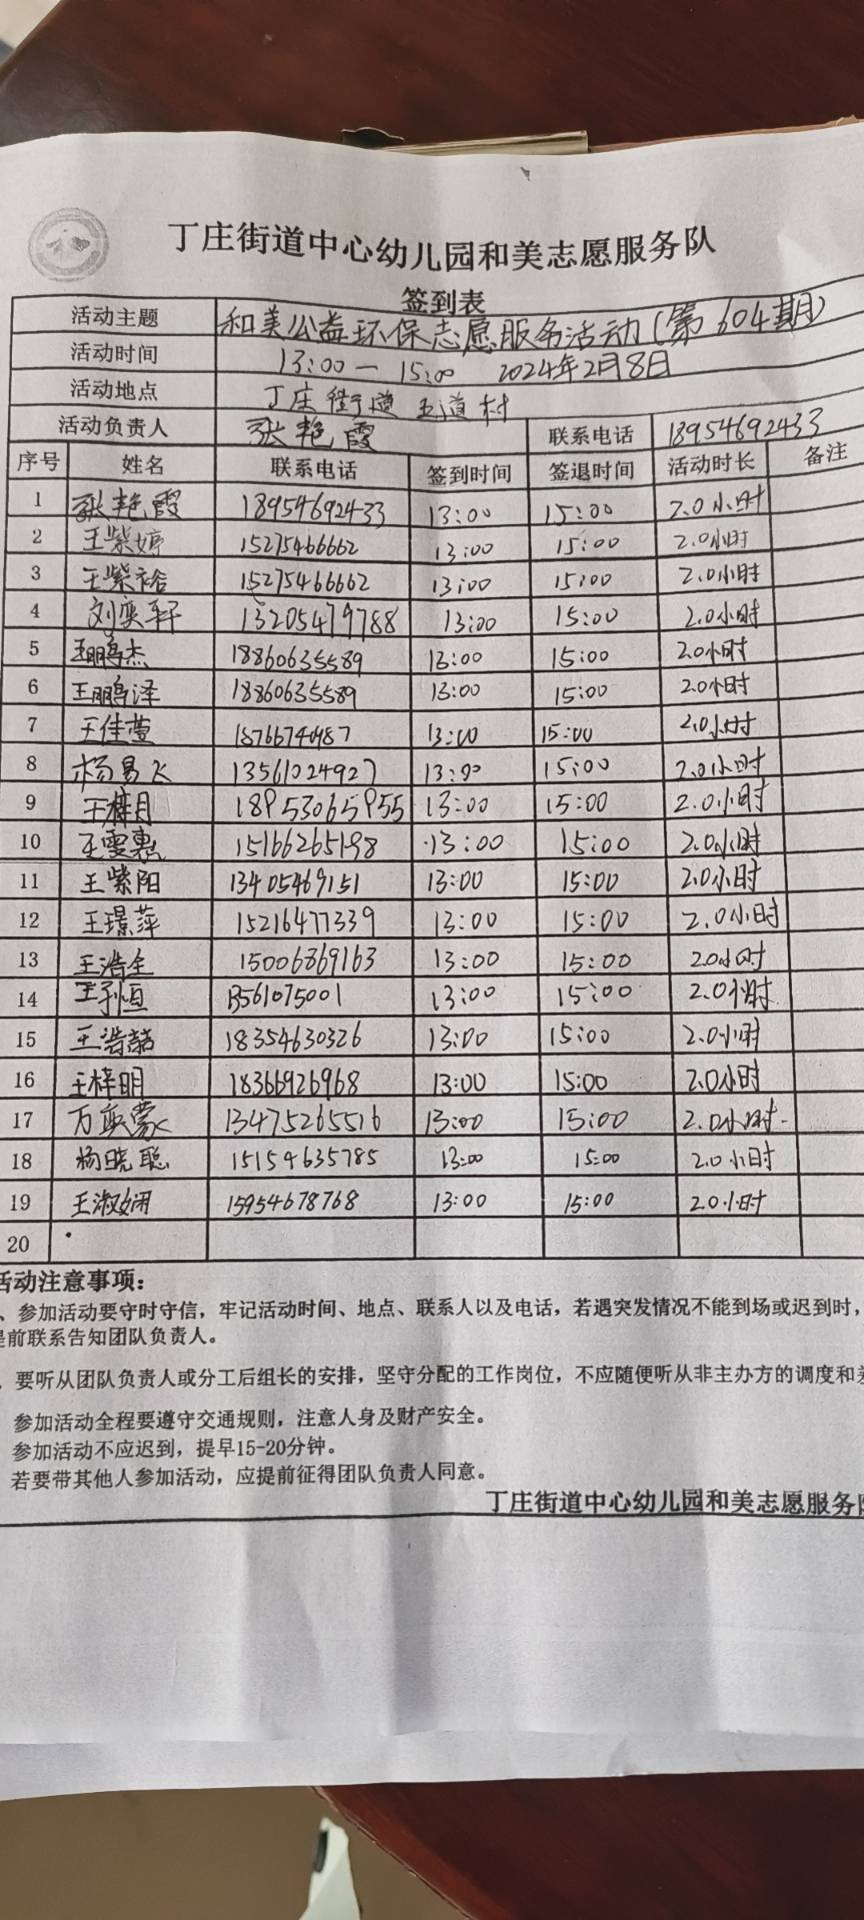 丁庄街道中心幼儿园和美志愿服务队
签到表
活动主题 和美公益环保志愿服务活动(第604期)
活动时间 13:00一15:00 2024年2月8日
活动地点 丁庄街道王道村
活动负责人 张艳霞 联系电话 18954692433
序号 姓名 联系电话 签到时间 签退时间 活动时长 备注
1 张艳霞 18954692433 13:00 15:00 2.0小时
2 王紫婷 15275466662 13:00 15:00 2.0小时
3 王紫裕 15275466662 13:00 15:00 2.0小时
4 刘奕轩 13205479788 13:00 15:00 2.0小时
5 王鹏杰 18860635589 13:00 15:00 2.0小时
6 王鹏泽 18860635589 13:00 15:00 2.0小时
7 王佳萱 13:00 15:00 2.0小时
8 杨易飞 13561024927 13:00 15:00 2.0小时
9 王梓月 18953065955 13:00 15:00 2.0小时
10 王雯惠 15166265198 13:00 15:00 2.0小时
11 王紫阳 13405469151 13:00 15:00 2.0小时
12 王璟萍 15216477339 13:00 15:00 2.0小时
13 王浩全 15006869163 13:00 15:00 2.0小时
14 王子恒 13561075001 13:00 15:00 2.0小时
15 王浩喆 18354630326 13:00 15:00 2.0小时
16 王梓明 18366926968 13:00 15:00 2.0小时
17 万奕蒙 13475265516 13:00 15:00 2.0小时
18 杨晓聪 15154635785 13:00 15:00 2.0小时
19 王淑娴 15954678768 13:00 15:00 2.0小时
20
活动注意事项：
、参加活动要守时守信，牢记活动时间、地点、联系人以及电话，若遇突发情况不能到场或迟到时，
提前联系告知团队负责人。
．要听从团队负责人或分工后组长的安排，坚守分配的工作岗位，不应随便听从非主办方的调度和
参加活动全程要遵守交通规则，注意人身及财产安全。
参加活动不应迟到，提早15-20分钟。
若要带其他人参加活动，应提前征得团队负责人同意。
丁庄街道中心幼儿园和美志愿服务队